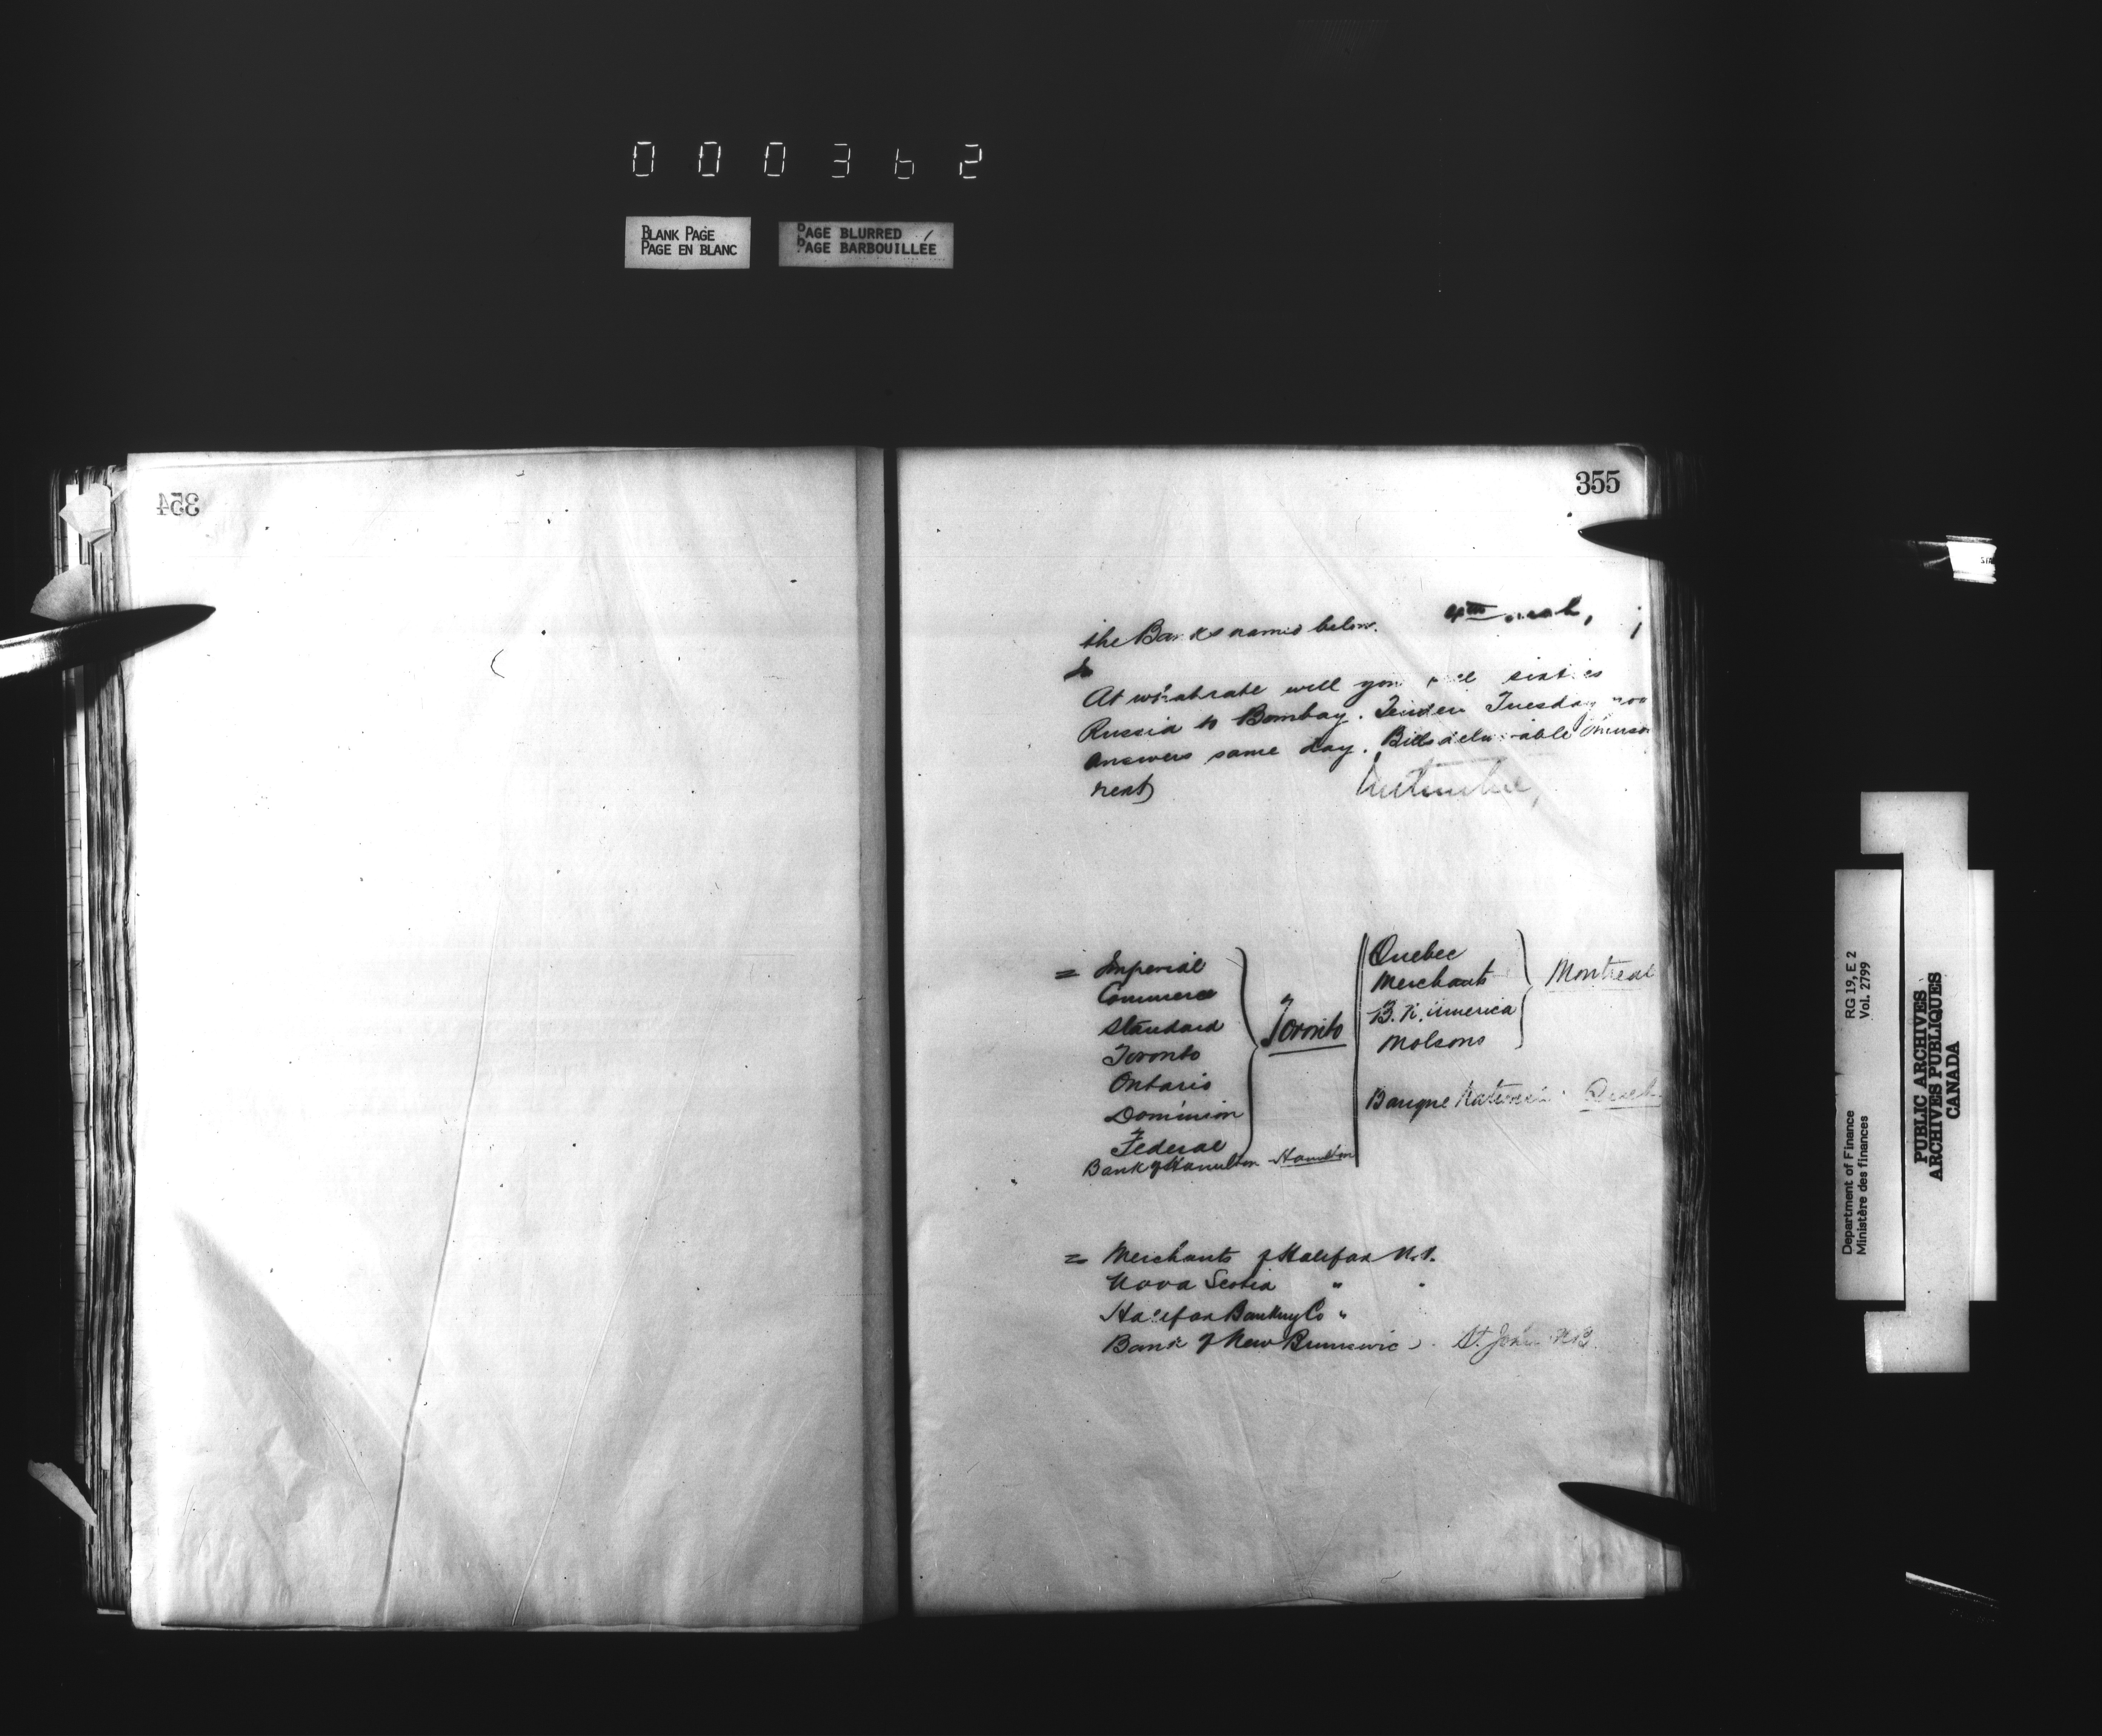 000362
BLANK PAGE
PAGE EN BLANC
PAGE BLURRED
PAGE BARBOUILLÉE
354
355
the Banks named below.
At what rate will you sell sixties
Russia to Bombay. Tenders Tuesday noo
answers same day. Bills deliverable
next
= Imperial
Commerce
Standard
Toronto
Ontario
Dominion
Federal
Toronto
Bank of Hamilton Hamilton
Quebec
Merchants
B. N. America
Molsons
Montreal
Banque National
= Merchants of Halifax N.S.
Nova Scotia " "
Halifax Banking Co "
Bank of New Brunswic St. John NB.
RG 19, E 2
Vol. 2799
Department of Finance
Ministère des finances
PUBLIC ARCHIVES
ARCHIVES PUBLIQUES
CANADA